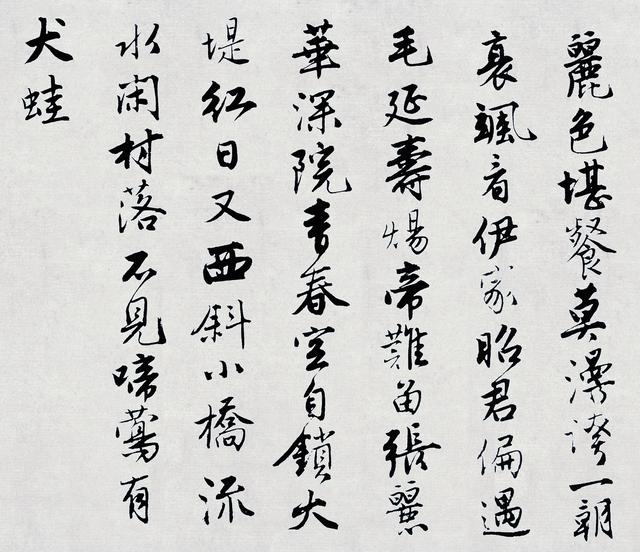 麗色堪餐莫漫誇一朝
衰颯音伊家昭君偏遇
毛延壽煬帝難留張麗
華深院青春空自鎖大
堤紅日又西斜小橋流
水閑村落不見啼鶯有
犬蛙